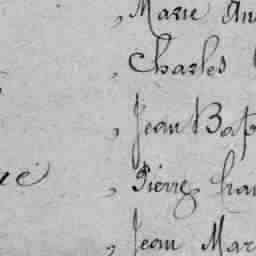 , Marie An
, Charles
, Jean Bap
ue , Pierre fran
, Jean Mar